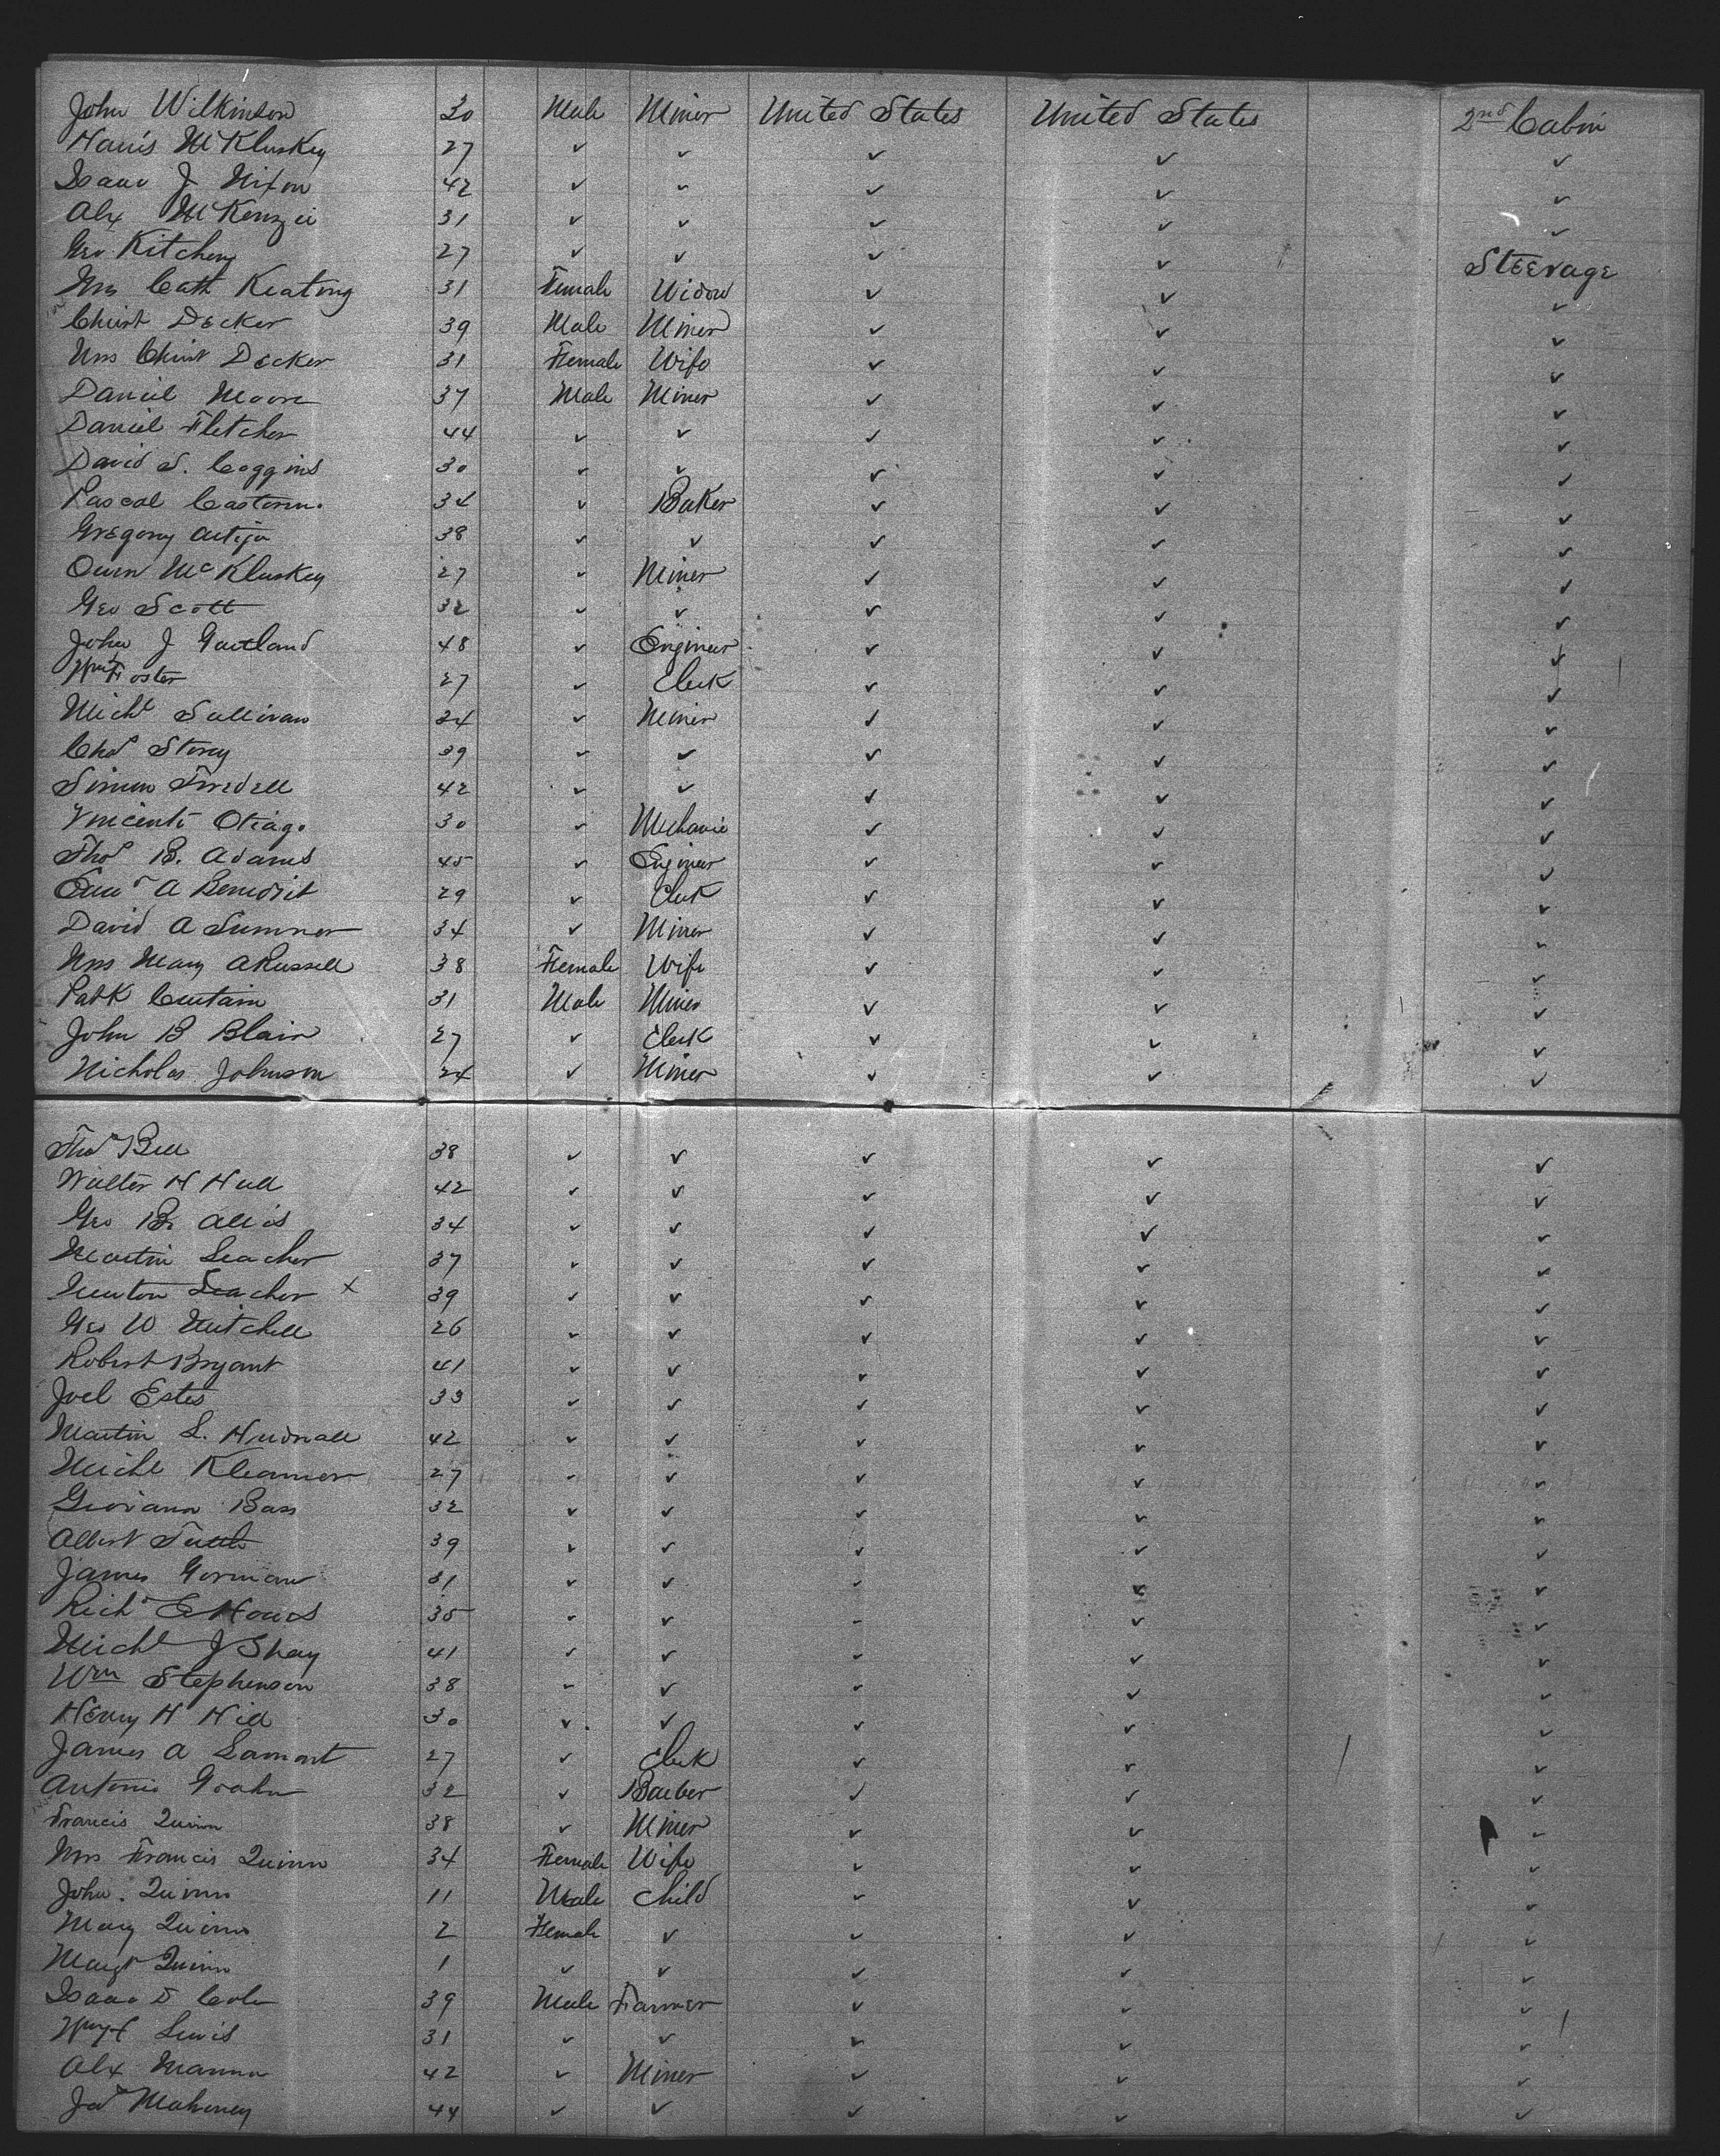 John Wilkinson 30 Male Miner United States United States 2nd Cabin
Harris McKluskey 27 ✓ ✓ ✓ ✓ ✓
Isaac J Nixon 42 ✓ ✓ ✓ ✓ ✓
Alx McKenzie 31 ✓ ✓ ✓ ✓ ✓
Geo Kitcheny 27 ✓ ✓ ✓ ✓ Steerage
Mrs Cath Keating 31 Female Widow ✓ ✓ ✓
Christ Decker 39 Male Miner ✓ ✓ ✓
Mrs Christ Decker 31 Female Wife ✓ ✓ ✓
Daniel Moore 37 Male Miner ✓ ✓ ✓
Daniel Fletcher 44 ✓ ✓ ✓ ✓ ✓
David S. Coggins 30 ✓ ✓ ✓ ✓ ✓
Pascal 34 ✓ Baker ✓ ✓ ✓
Gregory 38 ✓ ✓ ✓ ✓ ✓
Owen McKluskey 27 ✓ Miner ✓ ✓ ✓
Geo Scott 32 ✓ ✓ ✓ ✓ ✓
John J Gartland 48 ✓ Engineer ✓ ✓ ✓
Wm Foster 27 ✓ Clerk ✓ ✓ ✓
Michl Sullivan 24 ✓ Miner ✓ ✓ ✓
Chas Storey 39 ✓ ✓ ✓ ✓ ✓
Simon 42 ✓ ✓ ✓ ✓ ✓
Vincente Otiago 30 ✓ Mechanic ✓ ✓ ✓
Thos B. Adams 45 ✓ Engineer ✓ ✓ ✓
A Benedict 29 ✓ Clerk ✓ ✓ ✓
David A Sumner 34 ✓ Miner ✓ ✓ ✓
Mrs Mary A Russell 38 Female Wife ✓ ✓ ✓
Patk Curtain 31 Male Miner ✓ ✓ ✓
John B Blair 27 ✓ Clerk ✓ ✓ ✓
Nicholas Johnson 24 ✓ Miner ✓ ✓ ✓
Thos Bell 38 ✓ ✓ ✓ ✓ ✓
Walter H Hull 42 ✓ ✓ ✓ ✓ ✓
Geo B. Allis 34 ✓ ✓ ✓ ✓ ✓
Martin Leacher 37 ✓ ✓ ✓ ✓ ✓
Newton Leacher x 39 ✓ ✓ ✓ ✓ ✓
Geo W Mitchell 26 ✓ ✓ ✓ ✓ ✓
Robert Bryant 41 ✓ ✓ ✓ ✓ ✓
Joel Estes 33 ✓ ✓ ✓ ✓ ✓
Martin L. Hudnall 42 ✓ ✓ ✓ ✓ ✓
Michl Kleamer 27 ✓ ✓ ✓ ✓ ✓
Bass 32 ✓ ✓ ✓ ✓ ✓
Albert Tuttle 39 ✓ ✓ ✓ ✓ ✓
James Gorman 31 ✓ ✓ ✓ ✓ ✓
Richd E Howes 35 ✓ ✓ ✓ ✓ ✓
Michl J Shay 41 ✓ ✓ ✓ ✓ ✓
Wm Stephenson 38 ✓ ✓ ✓ ✓ ✓
Henry H Hill 30 ✓ ✓ ✓ ✓ ✓
James A Lamont 27 ✓ Clerk ✓ ✓ ✓
Antonio 32 ✓ Barber ✓ ✓ ✓
Francis Quinn 38 ✓ Miner ✓ ✓ ✓
Mrs Francis Quinn 34 Female Wife ✓ ✓ ✓
John Quinn 11 Male Child ✓ ✓ ✓
Mary Quinn 2 Female ✓ ✓ ✓ ✓
Margt Quinn 1 ✓ ✓ ✓ ✓ ✓
Isaac D Cole 39 Male Farmer ✓ ✓ ✓
Wm H Lewis 31 ✓ ✓ ✓ ✓ ✓
Alx Mannn 42 ✓ Miner ✓ ✓ ✓
Jas Mahoney 44 ✓ ✓ ✓ ✓ ✓